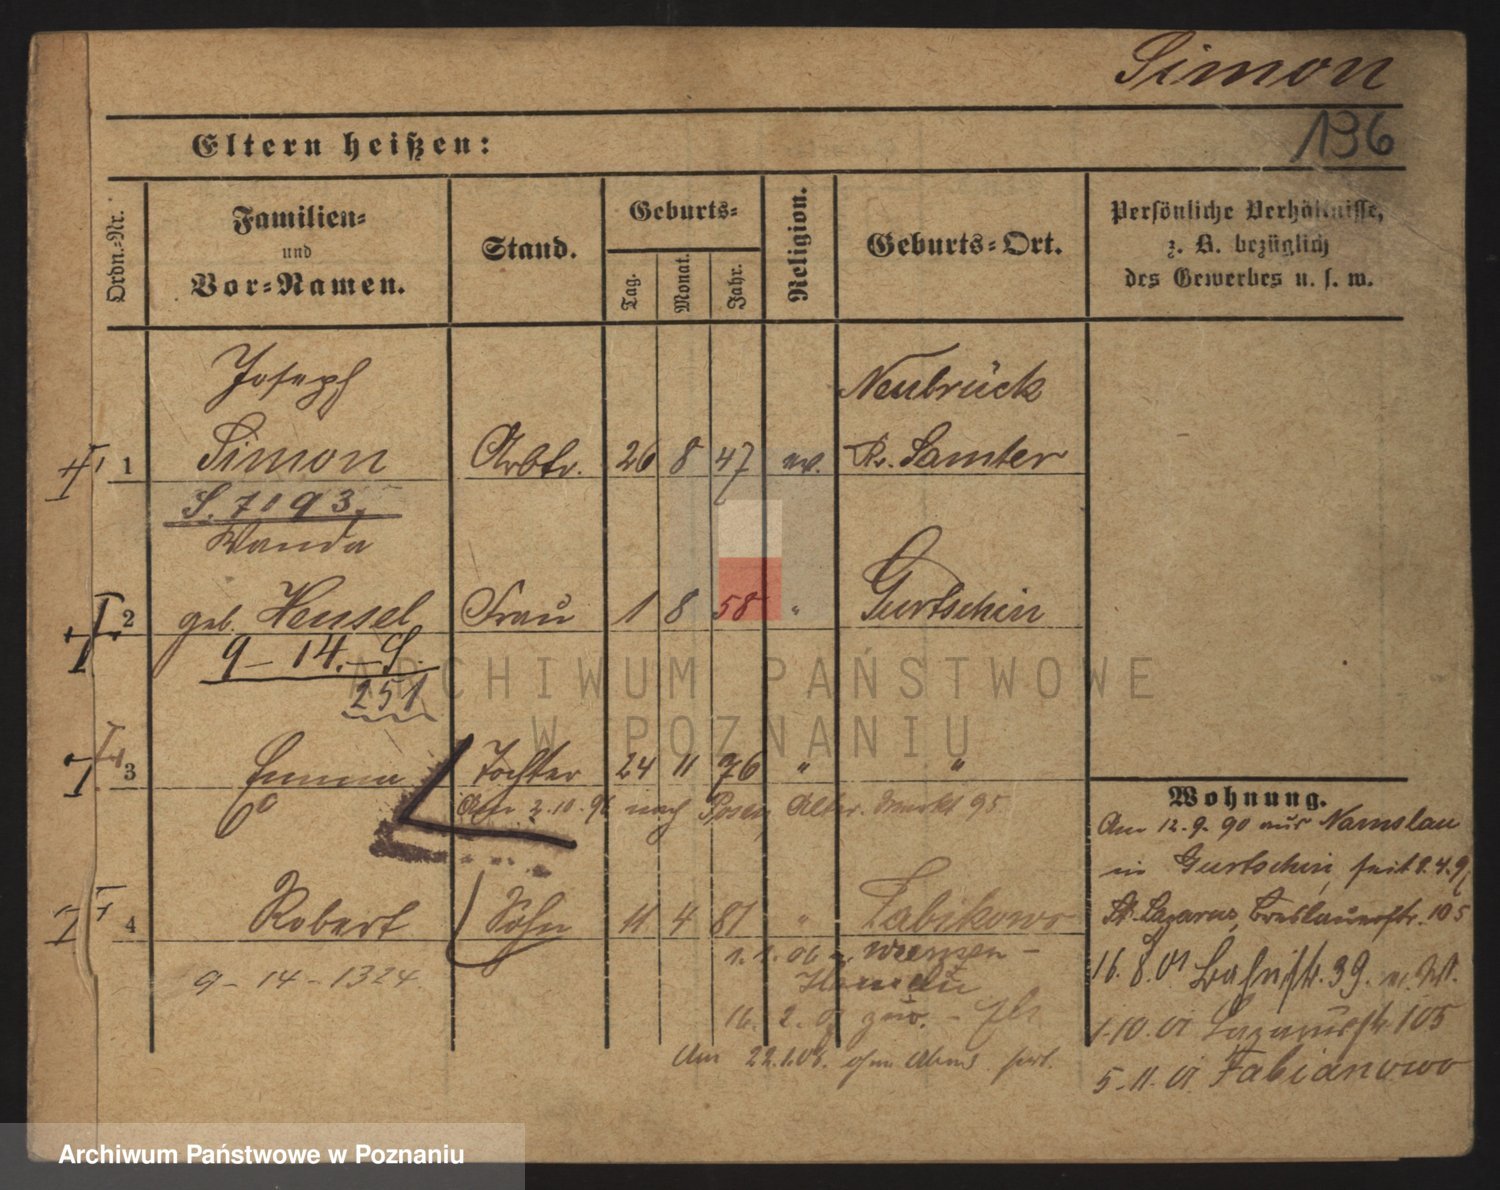 Simon
136
Eltern heißen:
Ordn.-Nr.
Familien-
und
Vor-Namen.
Stand.
Geburts-
Tag.
Monat.
Jahr.
Religion.
Geburts-Ort.
Persönliche Verhältnisse,
z. B. bezüglich
des Gewerbes u. s. w.
Joseph Neubrück
1 Simon Arbtr. 26 8 47 ev. Kr. Samter
S. 7193.
Wanda
2 geb. Hensel Frau 1 8 58 " Gurtschin
9 - 14. - S.
251
3 Emma Tochter 24 11 76 " "
Am 2.10. nach Posen, Alter Markt 95
4 Robert Sohn 11 4 81 " Zabikowo
9 - 14 - 1324.
1.1.06
16. 2. 07
Am 22.1.08. ohne Abmd. fort.
Wohnung.
Am 12.9.90 aus Namslau
in Gurtschin, seit
St. Lazarus, Breslauerstr. 105
16.8.01 Bahnstr. 39.
1.10.01 Lazarusstr. 105
5.11.01 Fabianowo
ARCHIWUM PAŃSTWOWE
W POZNANIU
Archiwum Państwowe w Poznaniu